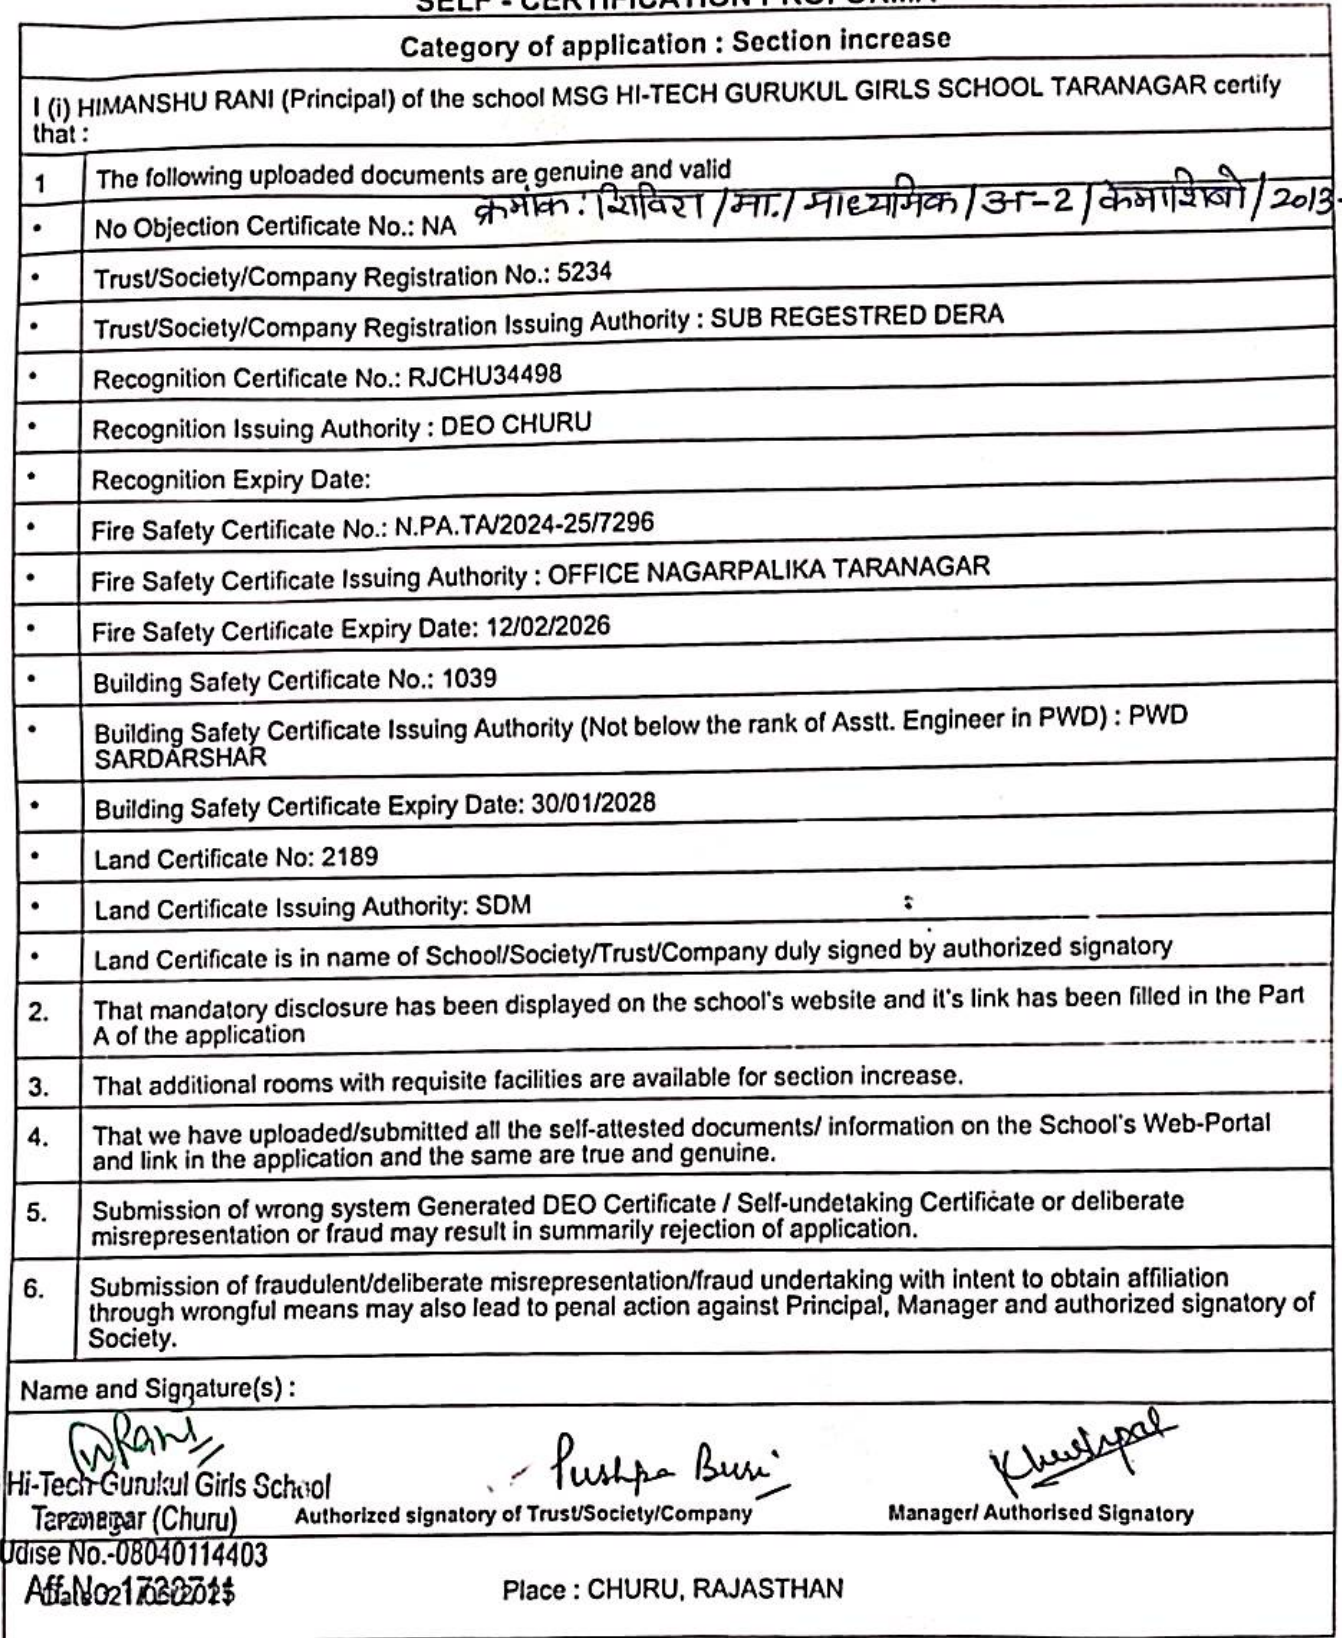 SELF - CERTIFICATION PROFORMA
Category of application : Section increase
I (i) HIMANSHU RANI (Principal) of the school MSG HI-TECH GURUKUL GIRLS SCHOOL TARANAGAR certify
that :
1 The following uploaded documents are genuine and valid
• No Objection Certificate No.: NA क्रमांक: शिविरा /मा./ माध्यमिक /अ-2 / केमाशिबो / 2013-
• Trust/Society/Company Registration No.: 5234
• Trust/Society/Company Registration Issuing Authority : SUB REGESTRED DERA
• Recognition Certificate No.: RJCHU34498
• Recognition Issuing Authority : DEO CHURU
• Recognition Expiry Date:
• Fire Safety Certificate No.: N.PA.TA/2024-25/7296
• Fire Safety Certificate Issuing Authority : OFFICE NAGARPALIKA TARANAGAR
• Fire Safety Certificate Expiry Date: 12/02/2026
• Building Safety Certificate No.: 1039
• Building Safety Certificate Issuing Authority (Not below the rank of Asstt. Engineer in PWD) : PWD
SARDARSHAR
• Building Safety Certificate Expiry Date: 30/01/2028
• Land Certificate No: 2189
• Land Certificate Issuing Authority: SDM
• Land Certificate is in name of School/Society/Trust/Company duly signed by authorized signatory
2. That mandatory disclosure has been displayed on the school's website and it's link has been filled in the Part
A of the application
3. That additional rooms with requisite facilities are available for section increase.
4. That we have uploaded/submitted all the self-attested documents/ information on the School's Web-Portal
and link in the application and the same are true and genuine.
5. Submission of wrong system Generated DEO Certificate / Self-undetaking Certificate or deliberate
misrepresentation or fraud may result in summarily rejection of application.
6. Submission of fraudulent/deliberate misrepresentation/fraud undertaking with intent to obtain affiliation
through wrongful means may also lead to penal action against Principal, Manager and authorized signatory of
Society.
Name and Signature(s) :
Rani
Pushpa
Khushpal
Hi-Tech Gurukul Girls School
(Churu) Authorized signatory of Trust/Society/Company Manager/ Authorised Signatory
Udise No.-08040114403
Place : CHURU, RAJASTHAN